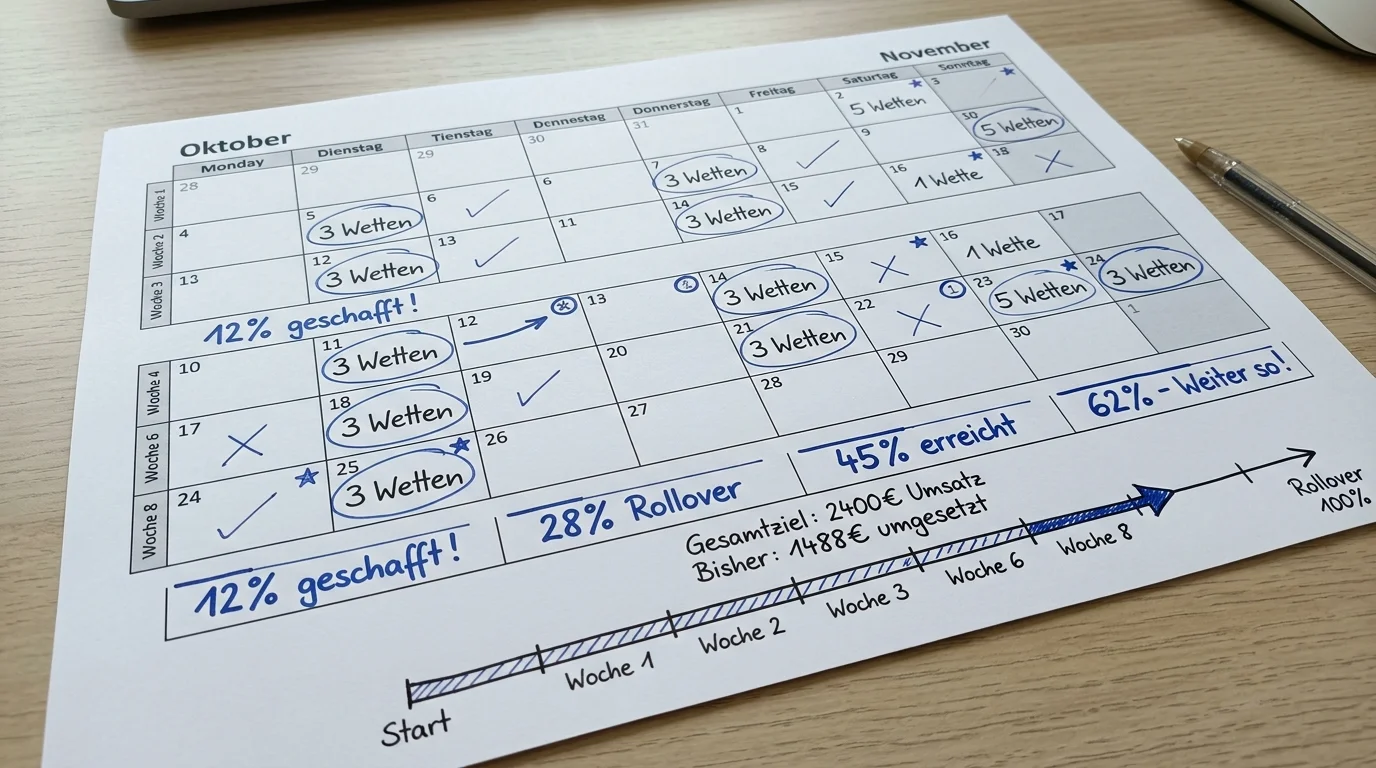 November
Oktober
Monday Dienstag Tienstag Dcnnestag Donnerstag Freitag Saturtag Sonntag
Woche 1 28 29 29 30 31 1 2 5 Wetten 3
Woche 2 4 5 3 Wetten 6 6 7 3 Wetten 8 9 30 5 Wetten
Wocke 3 13 12 3 Wetten 13 11 14 3 Wetten 15 16 1 Wette 18
12% geschafft!
Woche 4 10 11 3 Wetten 12 13 2 14 3 Wetten 15 16 1 Wette 17
Woche 6 17 18 3 Wetten 19 20 21 3 Wetten 22 1 23 5 Wetten 24 3 Wetten
Woche 8 24 25 3 Wetten 26 27 28 29 30 1
12% geschafft!
28% Rollover
45% erreicht
62% - Weiter so!
Gesamtziel: 2400€ Umsatz
Bisher: 1488€ umgesetzt
Start
Woche 1
Woche 2
Woche 3
Woche 6
Woche 8
Rollover
100%